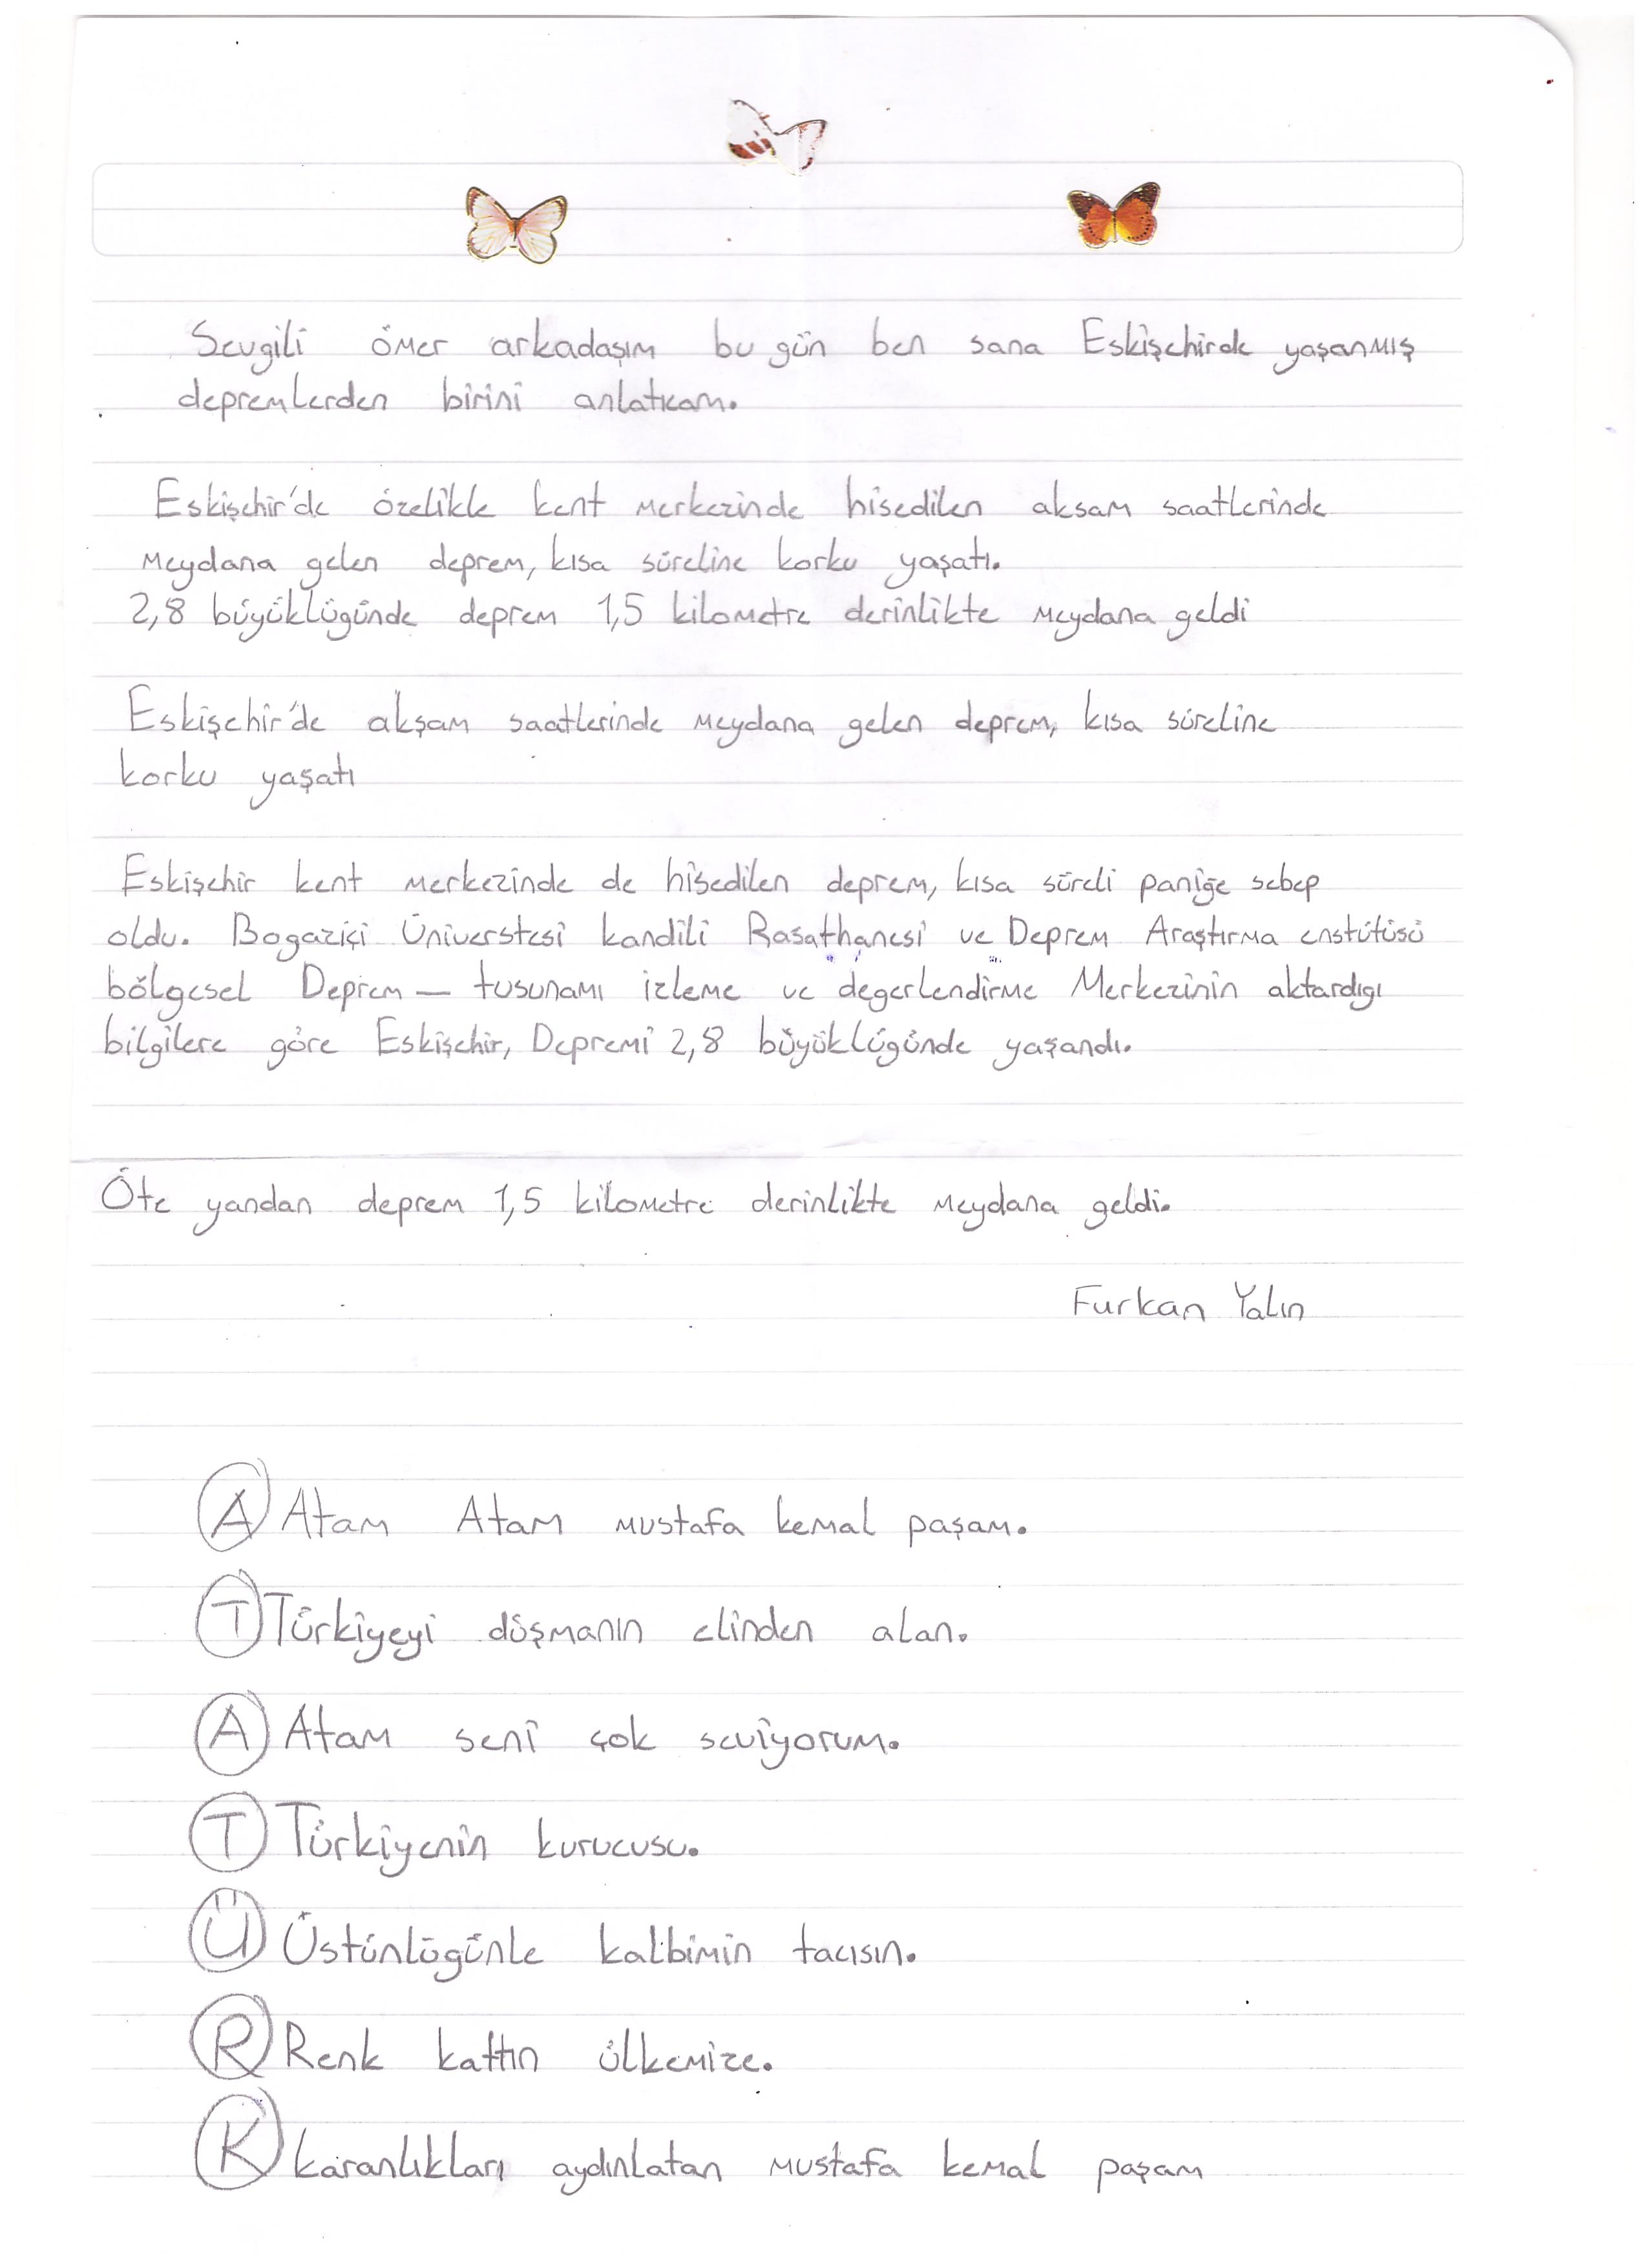 Sevgili ömer arkadaşım bu gün ben sana Eskişehirde yaşanmış
depremlerden birini anlatıcam.
Eskişehir'de özelikle kent merkezinde hisedilen aksam saatlerinde
meydana gelen deprem, kısa süreline korku yaşatı.
2,8 büyüklügünde deprem 1,5 kilometre derinlikte meydana geldi
Eskişehir'de akşam saatlerinde meydana gelen deprem, kısa süreline
korku yaşatı
Eskişehir kent merkezinde de hisedilen deprem, kısa süreli paniğe sebep
oldu. Bogaziçi Üniverstesi kandili Rasathanesi ve Deprem Araştırma enstütüsü
bölgesel Deprem - tusunamı izleme ve degerlendirme Merkezinin aktardıgı
bilgilere göre Eskişehir, Depremi 2,8 büyüklügünde yaşandı.
Öte yandan deprem 1,5 kilometre derinlikte meydana geldi.
Furkan Yalın
A Atam Atam mustafa kemal paşam.
T Türkiyeyi düşmanın elinden alan.
A Atam seni çok seviyorum.
T Türkiyenin kurucusu.
Ü Üstünlügünle kalbimin tacısın.
R Renk kattın ülkemize.
K karanlıkları aydınlatan mustafa kemal paşam